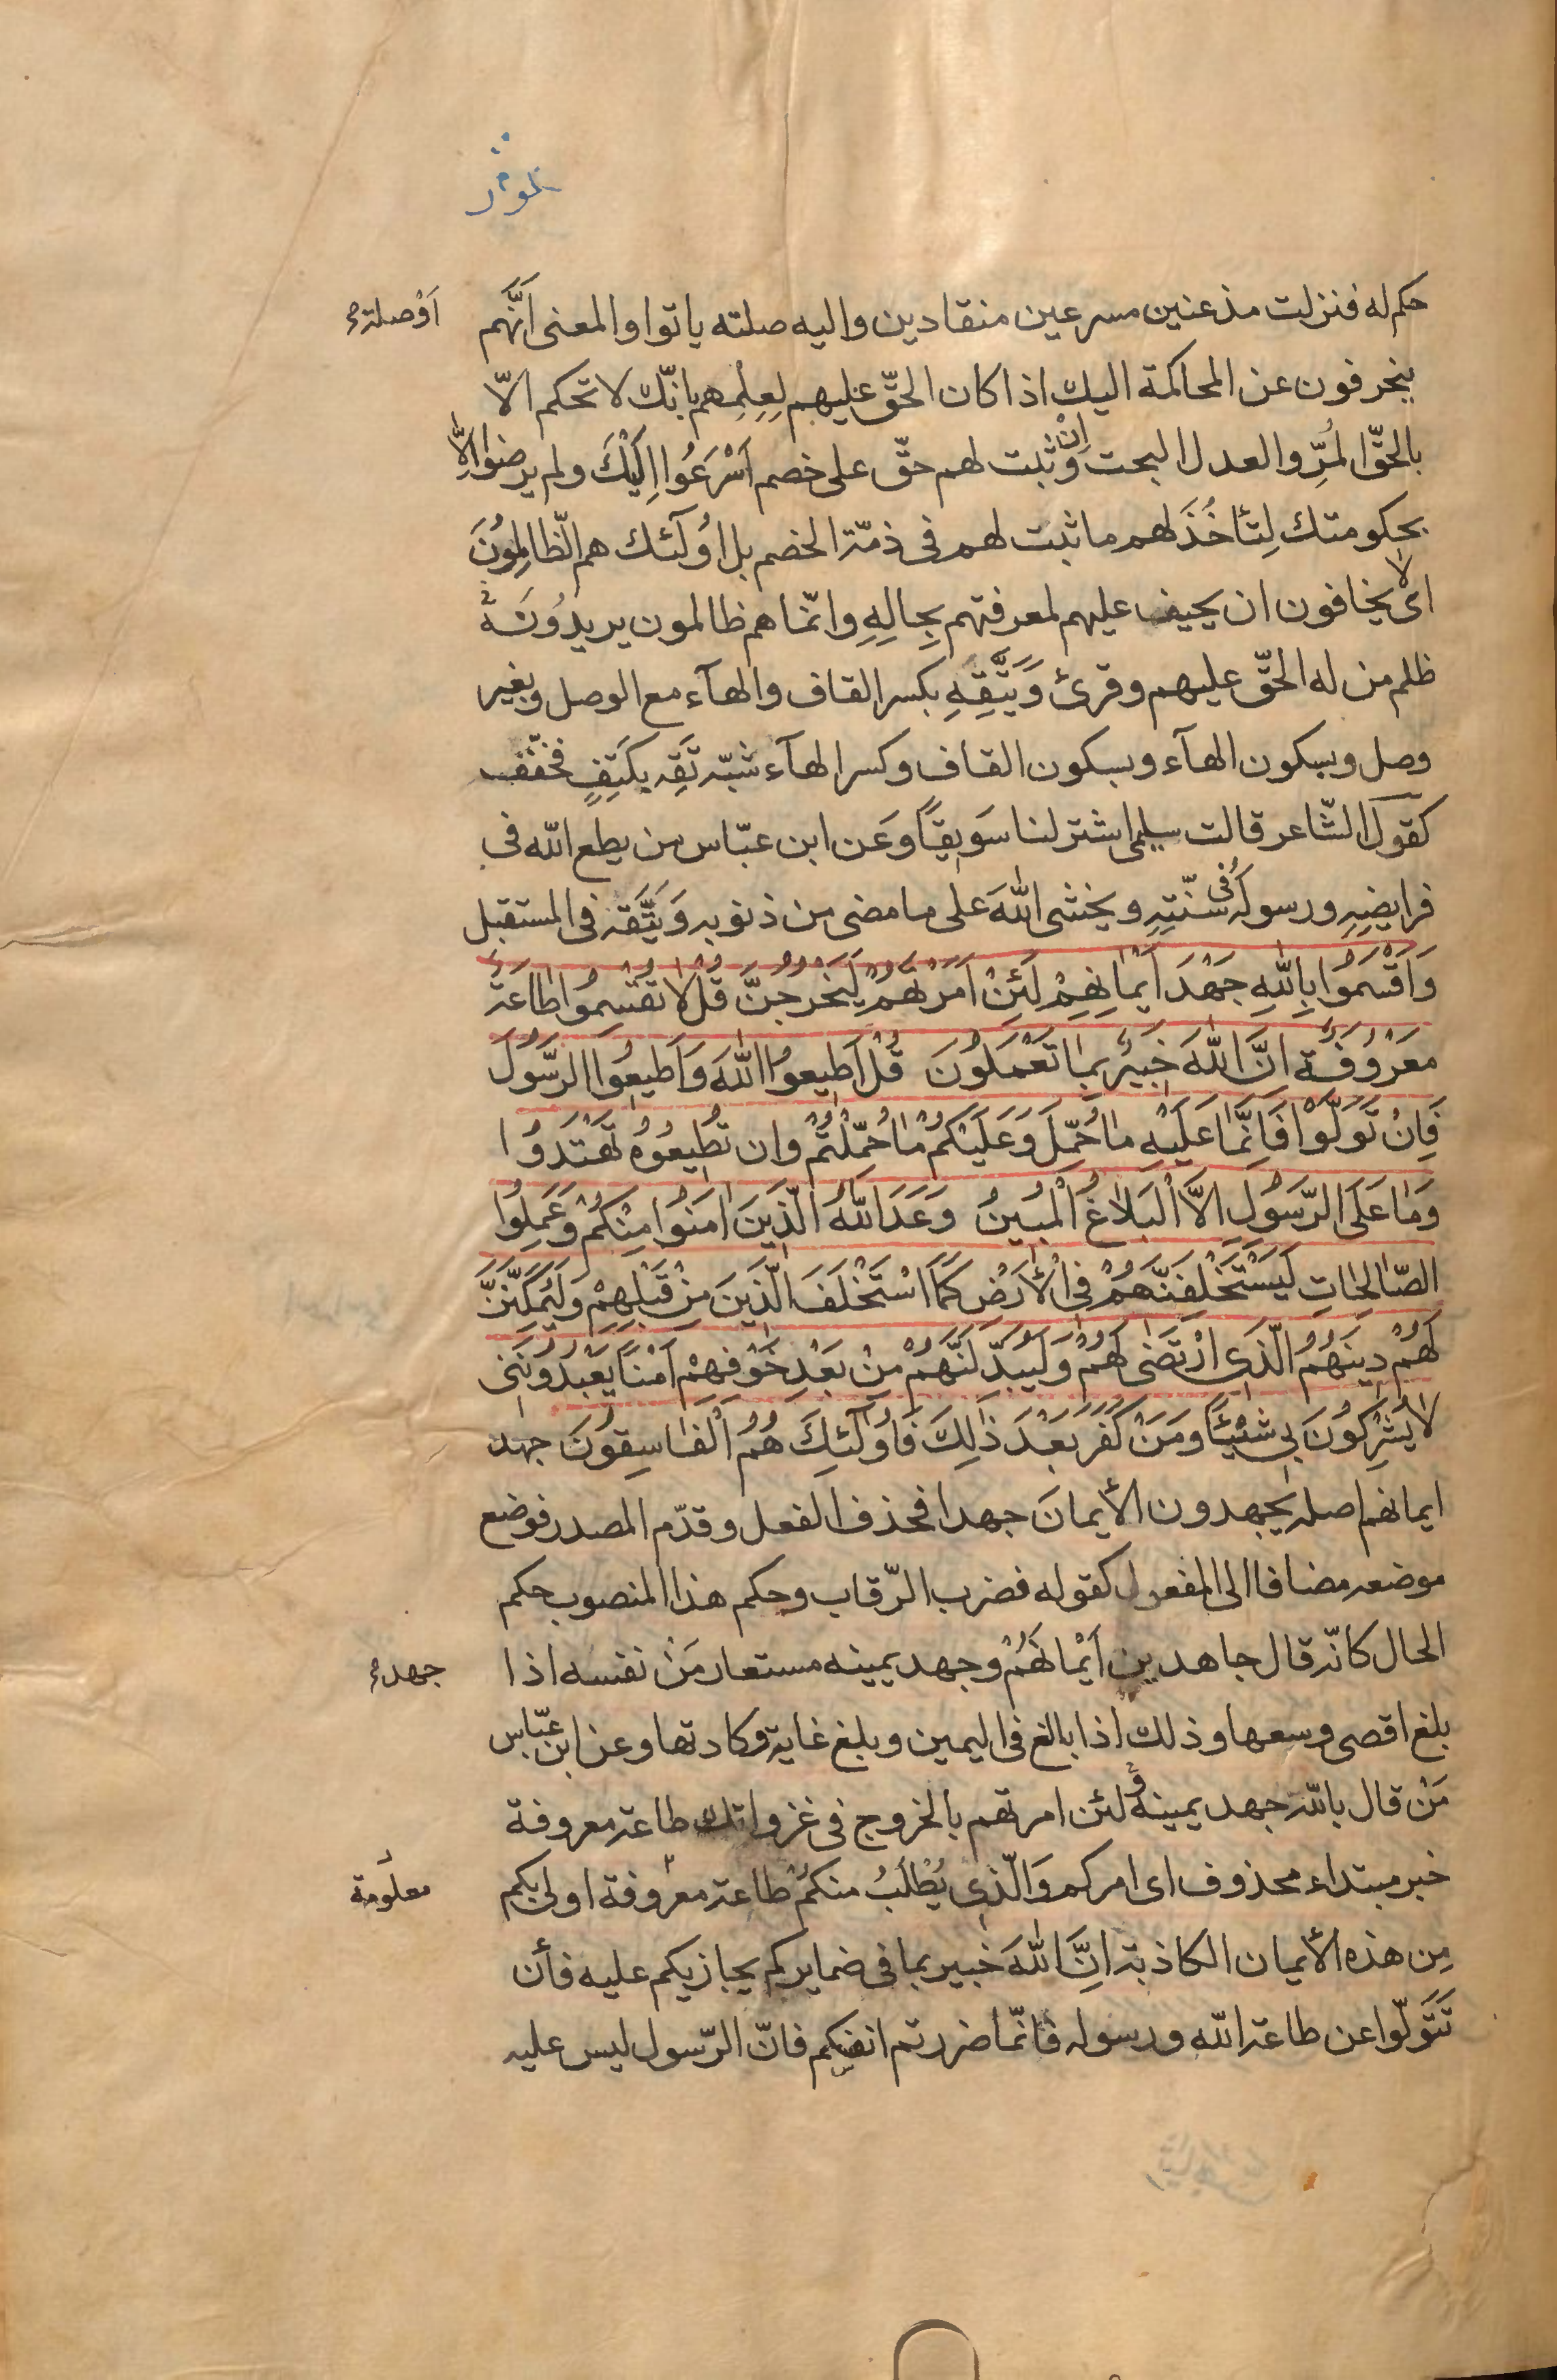 حكم له فنزلت مذعنين مسرعين منقادين واليه صلته ياتوا والمعنى اَنَّهم
اَوْصلة
ينحرفون عن المحاكمة اليك اذا كان الحقّ عليهم لِعِلِمهم بانّك لا تحكم الّا
بالحقّ المُرِّ والعدل البحت وَاِنْ ثبت لهم حقّ على خصم اَسْرَعُوا اِلَيْكَ ولم يرضوا اِلّا
بحكومتك لِتَأخُذَ لهم ما ثبت لهم فى ذمّة الخصم بل اوُلَئك هم الظّالِمُونَ
اى لا يخافون ان يحيف عليهم لمعرفتهم بِحِالِهِ وانّما هم ظالمون يريدُونَ
ظلم من له الحقّ عليهم وقرئ وَيَتَّقِهِ بكسر القاف والهآء مع الوصل وبغير
وصل وبسكون الهآء وبسكون القاف وكسر الهآء شبّه تَقِه بكَتِفٍ فخفّف
كقول الشّاعر قالت سليمى اشتر لنا سَويقاً وَعَن ابن عبّاس من يطع الله فى
فرايضِهِ ورسولَهُ فى سنّتِهِ ويخشى اللهَ على ما مضى من ذنوبه وَيَتَّقه فى المستقبل
وَاَقْسَمُوا بِاللهِ جَهْدَ اَيْمَانِهِمْ لَئِنْ اَمَرْتَهُمْ لَيَخْرُجُنَّ قُلْ لا تُقْسِمُوا طَاعَةٌ
مَعْرُوفَةٌ اِنَّ اللهَ خَبِيرٌ بِمَا تَعْمَلُونَ قُلْ اَطِيعُوا اللهَ وَاَطِيعُوا الرَّسُولَ
فَاِنْ تَوَلَّوْا فَاِنَّمَا عَلَيْهِ مَا حُمِّلَ وَعَلَيْكُمْ مَا حُمِّلْتُمْ وان تُطِيعُوهُ تَهْتَدُوا
وَمَا عَلَى الرَّسُولِ اِلَّا الْبَلَاغُ الْمُبِينُ وَعَدَ اللهُ الَّذِينَ امَنُوا مِنْكُمْ وَعَمِلُوا
الصَّالِحَاتِ لَيَسْتَخْلِفَنَّهُمْ فِى الْأَرْضِ كَمَا اسْتَخْلَفَ الَّذِينَ مِنْ قَبْلِهِمْ وَلَيُمَكِّنَنَّ
لَهُمْ دِينَهُمُ الَّذِى ارْتَضَى لَهُمْ وَلَيُبَدِّلَنَّهُمْ مِنْ بَعْدِ خَوْفِهِمْ اَمْنًا يَعْبُدُونَنِى
لَا يُشْرِكُونَ بِى شَيْئًا وَمَنْ كَفَرَ بَعْدَ ذَلِكَ فَاُولَئِكَ هُمُ الْفَاسِقُونَ جهد
ايمانهم اصله يجهدون الأيمانَ جهدا فحذف الفعل وقدّم المصدر فوضع
موضعه مضافا الى المفعول كقوله فضرب الرّقاب وحكم هذا المنصوب حكم
الحال كانّه قال جاهدين اَيْمانَهُمْ وجهد يمينه مستعار مَنْ نفسه اذا
جهد
بلغ اقصى وسعها وذلك اذا بالغ فى اليمين وبلغ غاية وكادتها وعن ابن عبّاس
مَنْ قال بالله جهد يمينه و لئن امرتهم بالخروج فى غزواتك طاعة معروفة
خبر مبتداء محذوف اى امركم وَالّذى يُطْلَبُ منكمْ طاعة معروفة اولى بكم
معلومة
مِن هذه الأيمان الكاذبة انَِّ اللهَ خبير بما فى ضمايركم يجازيكم عليه فأن
تَتَولّوا عن طاعة الله ورسوله فانّما ضررتم انفسكم فانّ الرّسول ليس عليه